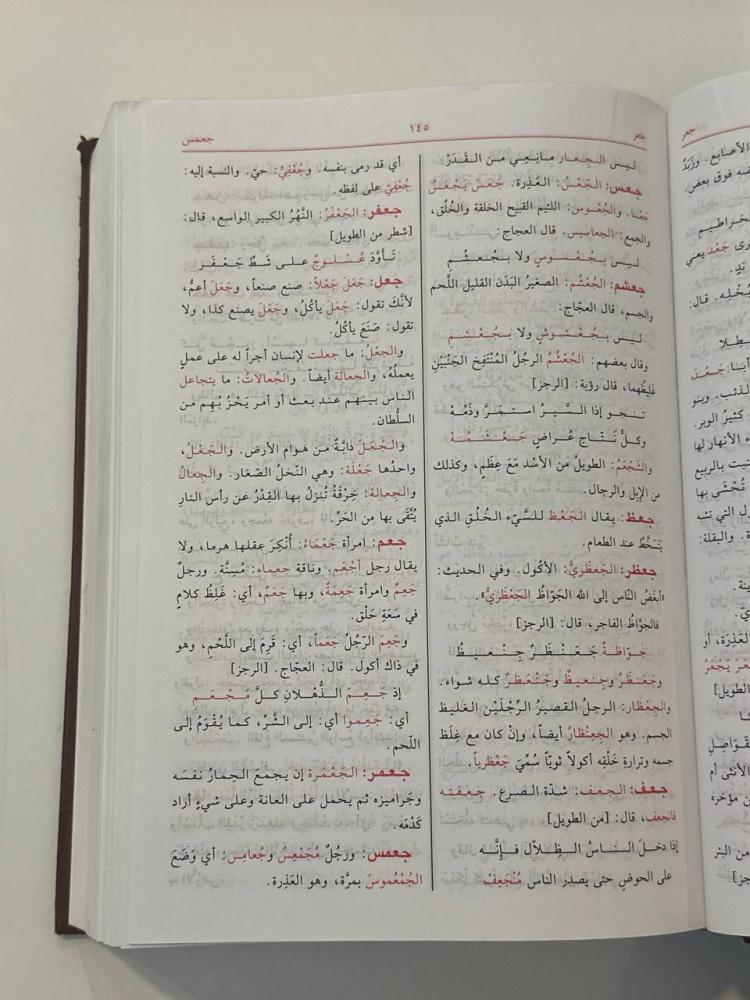 جعر
١٤٥
جعمس
ليس الجِعَار مانِعِي من القَدَرْ
جعس: الجَعْسُ: العَذِرة. جَعَسَ يَجْعَسُ
جَعْسا. والجُعْسوس: اللئيم القبيح الخلقة والخُلُق،
والجمع: الجعاسيس. قال العجاج:
ليس بِجُعْسوسٍ ولا بجُعشُمِ
جعشم: الجُعْشُم: الصغيرُ البَدَن القليل اللَّحم
والجسم، قال العجّاج:
ليس بجُعْشوشٍ ولا بجُعْشمِ
وقال بعضهم: الجُعْشُمُ الرجُلُ المُنْتَفِخ الجَنْبَيْنِ
غَليظُهما، قال رؤبة: [الرجز]
تنجو إذا السَّيرُ استمرَّ وَذَمُهْ
وكلُّ نَئّاج عُراضٍ جَعْشَمُهْ
والشَّجْعَمُ: الطويلُ من الأُسْد مَعَ عِظَمٍ، وكذلك
من الإبل والرجال.
جعظ: يقال الجَعْظ للسَّيّء الخُلُقِ الذي
يَتَسخَّطُ عند الطعام.
جعظر: الجَعْظَريُّ: الأكول. وفي الحديث:
«أبغَضُ النّاس إلى الله الجَوّاظُ الجَعْظَريُّ».
فالجوَّاظُ الفاجر، قال: [الرجز]
جَوّاظَةٌ جَعَنْظَرٌ جِنْعيظُ
وجَعَنْظَرٌ وجِنعيظٌ وجَعَنْظَرٌ كله سَواء.
والجِعْظار: الرجلُ القصيرُ الرِّجْلَيْن الغليظ
الجسم. وهو الجِعِنْظارُ أيضاً، وإنْ كان مع غِلَظ
جسمه وترارةِ خَلْقِه أكولاً قويّاً سُمِّيَ جَعْظَرياً.
جعف: الجعف: شدّة الصرع. جعفته
فانجعف، قال: [من الطويل]
إذا دخلَ الناسُ الظِّلالَ فإنَّه
على الحوضِ حتى يصدر الناس مُنْجَعِفْ
أي قد رمى بنفسه. وجُعْفِيٌّ: حيّ. والنسبة إليه:
جُعْفِيّ على لفظه.
جعفر: الجَعْفَرُ: النَّهْرُ الكبير الواسع، قال:
[شطر من الطويل]
تأوَّدَ عُسْلوجٌ على شَطِّ جَعْفَر
جعل: جَعَلَ جَعْلاً: صنع صنعاً، وجَعَلَ أعمُّ،
لأنَّكَ تقول: جَعَلَ يأكُلُ، وجَعَلَ يصنع كذا، ولا
تقول: صَنَعَ يأكُلُ.
والجعْلُ: ما جعلت لإنسان أجراً له على عملٍ
يعملُهُ، والجعالة أيضاً. والجُعالاتُ: ما يتجاعل
الناس بينهم عند بعث أو أمر يَحْزُ بُهِم من
السلُطان.
والجُعَلُ دابّةٌ من هوام الأرض. والجَعْلُ،
واحدُها جَعْلَة: وهي النَّخلُ الصّغار. والجِعالُ
والجِعالة: خِرْقَةٌ تُنزلُ بها القِدْرُ عن رأس النار
يُتَّقَى بها من الحَرّ.
جعم: امرأة جَعْمَاءُ: أُنْكِرَ عقلها هرما، ولا
يقال رجل أَجْعَم. وناقة جعماء: مُسِنَّة. ورجلٌ
جَعِمٌ وامرأة جَعِمَةٌ، وبها جَعَمٌ، أي: غِلَظُ كلامٍ
في سَعَةِ حَلْق.
وجَعِمَ الرّجُلُ جَعَماً، أي: قَرِمَ إلى اللَّحْمِ، وهو
في ذاك أكول. قال: العجّاج. [الرجز]
إذ جَعِمَ الذُّهْلانِ كلَّ مَجْعَمِ
أي: جَعِموا أي: إلى الشَّرِّ، كما يُقْوَمُ إلى
اللّحم.
جعمر: الجَعْمَرة إن يجمعَ الحِمارُ نفسَه
وجَراميزه ثم يحمل على العانة وعلى شيءٍ أراد
كَدْمَه.
جعمس: ورجلٌ مُجَعْمِسٌ وجُعامِس: أي وَضَعَ
الجُمْعُموسَ بمرَّة، وهو العَذِرة.
جعر